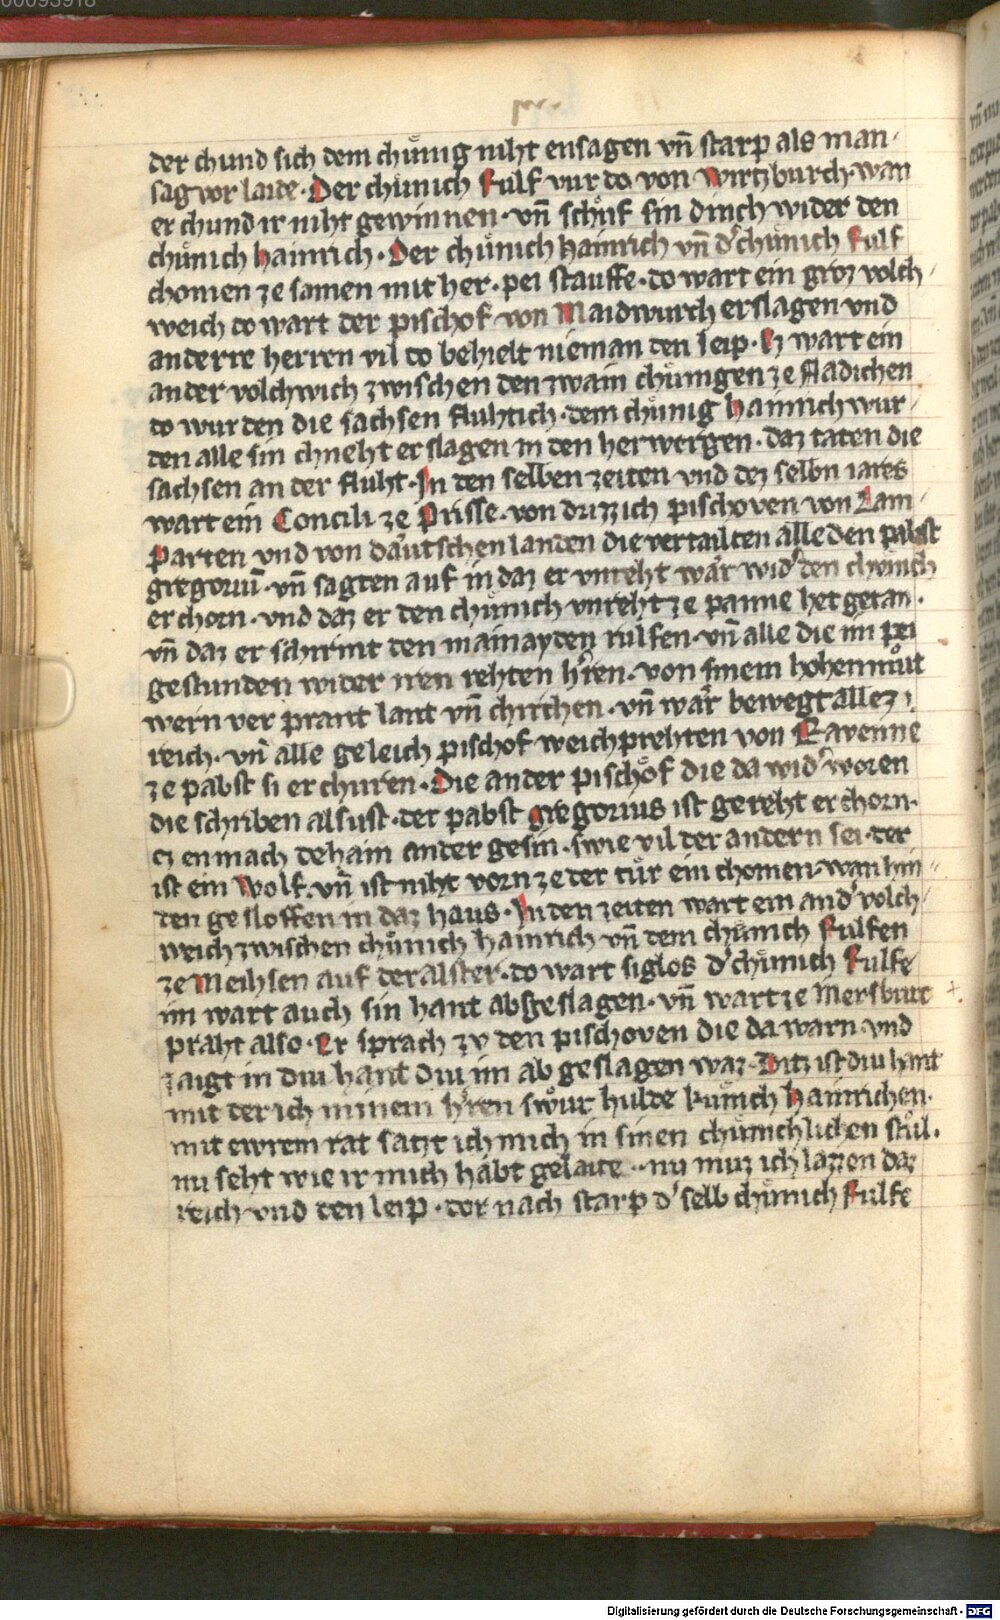 00093918
der chund sich dem chuͤnig niht ensagen vn̄ starp als man
sagvor laite · Der chuͤnich Rulf vur do von wirtzburch · wan
er chund ir niht gewinnen · vn̄ schuͤf sin dinch wider den
chuͤnich hainrich · Der chuͤnich hainrich vn̄ d' chuͤnich Rulf
chomen ze samen mit her · pei stauffe · do wart ein groz volch
weich do wart der pischof von Maidwurch erslagen vnd
anderre herren vil do behielt nieman den leip · Ez wart ein
ander volchwich zwischen den zwain chuͤnigen ze fladichen
do wurden die sachsen fluhtich · dem chuͤnig hainrich wur
den alle sin chneht erslagen in den herwergen · daz taten die
sachsen an der fluht · In den selben zeiten vnd dez selbn iares
wart ein Concili ze Prisse · von drizzich pischoven von Lam
parten vnd von daͤutschen landen die vertailten alle den pabst
gregoriū · vn̄ sagten auf in daz er vnreht waͤr wid' den chuͤnich
erchorn · vnd daz er den chuͤnich vnreht ze panne het getan ·
vn̄ daz er schirmt den mainayden rulfen · vn̄ alle die im pei
gestunden wider iren rehten h'ren · von sinem hohenmuͦt
wern verprant lant vn̄ chirchen · vn̄ waͤr bewegt allez
reich · vn̄ alle geleich pischof weichprehten von Ravenne
ze pabst si erchuren · Die ander pischoͤf die da wid' woren
die schriben alsust · der pabst gregorius ist gereht erchorn ·
ez enmach dehain ander gesin · swie vil der andern sei · der
ist ein Wolf · vn̄ ist niht vorn ze der tuͤr ein chomen · wan hin
den gesloffen in daz haus · In den zeiten wart ein and' volch
weich zwischen chuͤnich hainrich vn̄ dem chuͤnich Rulfen
ze Meihsen auf der alster · do wart siglos d' chuͤnich Rulfe
im wart auch sin hant abgeslagen · vn̄ wart ze Mersburc
praht also · Er sprach zv den pischoven die da warn vnd
zaigt in diu hant diu im abgeslagen waz · Ditz ist diu hant
mit der ich minem h'ren swuͦr hulde kuͤnich hainrichen ·
mit ewrem rat satzt ich mich in sinen chuͤnichlichen stuͦl ·
nu seht wie ir mich habt gelaite · nu muz ich lazzen daz
reich vnd den leip · dor nach starp d' selb chuͤnich Rulfe
Digitalisierung gefördert durch die Deutsche Forschungsgemeinschaft · DFG